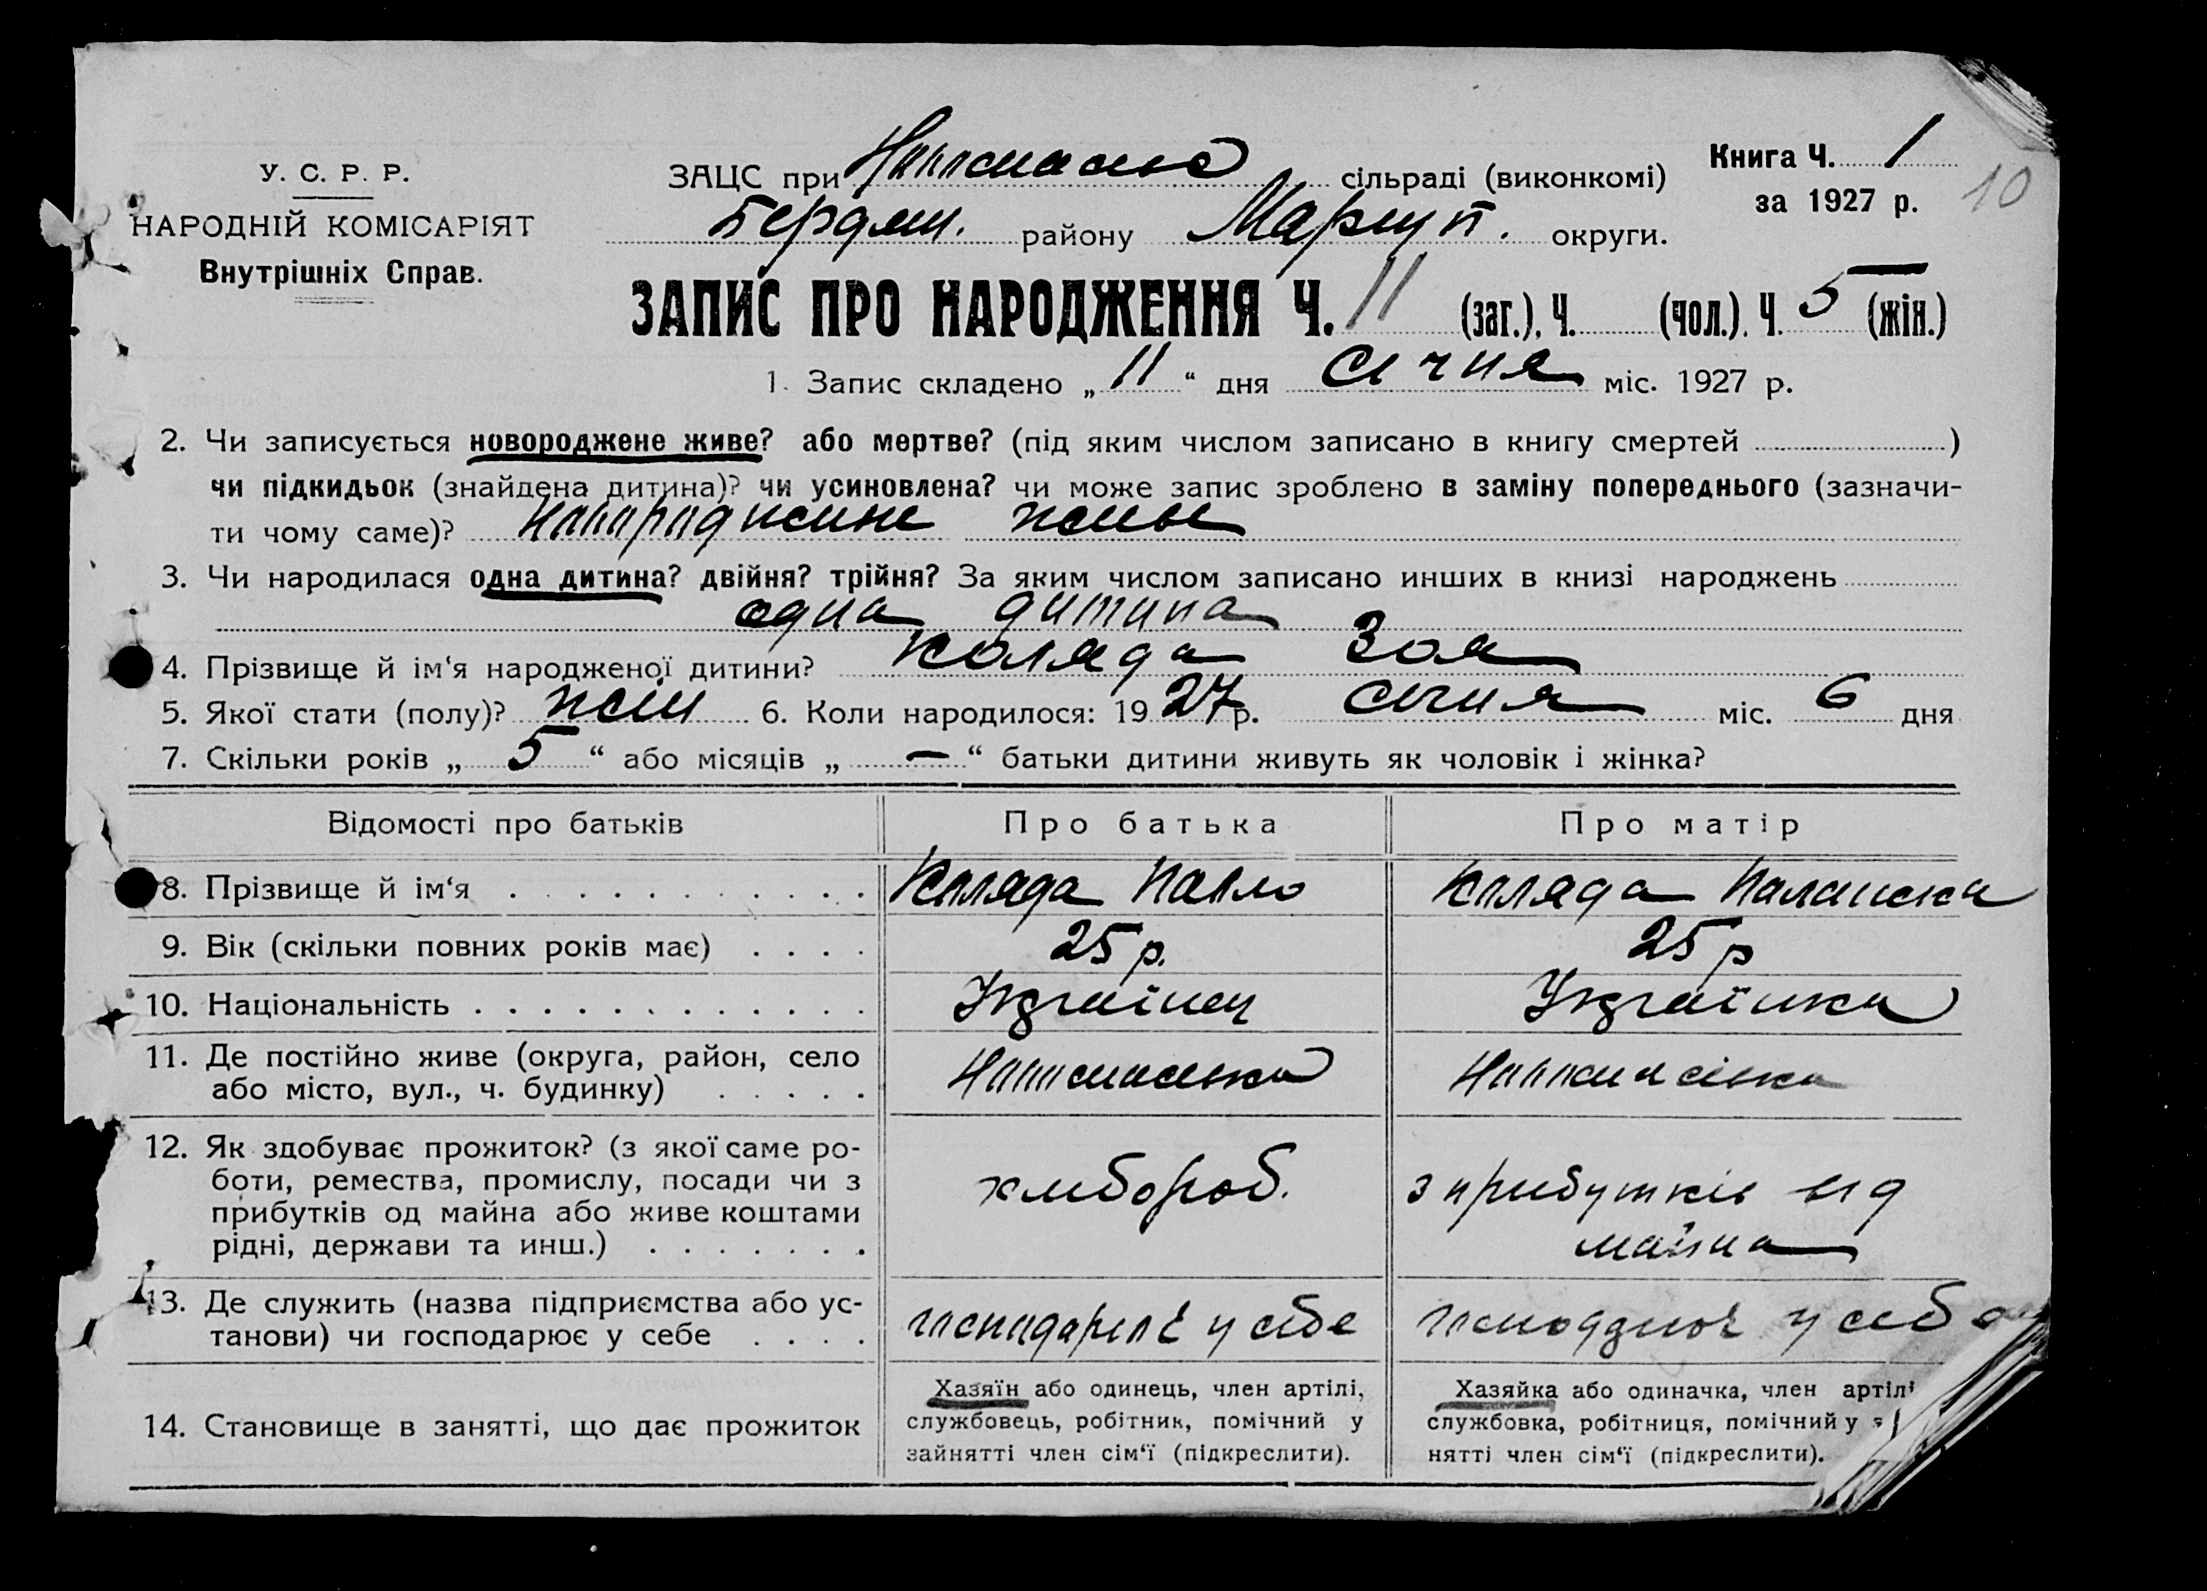 У. С. Р. Р.
НАРОДНІЙ КОМІСАРІЯТ
Внутрішніх Справ.
ЗАЦС при сільраді (виконкомі)
Бердян. району Маріуп. округи.
Книга Ч. 1
за 1927 р.
10
ЗАПИС ПРО НАРОДЖЕННЯ Ч. 11 (заг.), Ч. (чол.), Ч. 5 (жін.)
1. Запис складено „ 11 “ дня січня міс. 1927 р.
2. Чи записується новороджене живе? або мертве? (під яким числом записано в книгу смертей )
чи підкидьок (знайдена дитина)? чи усиновлена? чи може запис зроблено в заміну попереднього (зазначи-
ти чому саме)? новороджене живе
3. Чи народилася одна дитина? двійня? трійня? За яким числом записано инших в книзі народжень
одна дитина
4. Прізвище й ім‘я народженої дитини? Коляда Зоя
5. Якої стати (полу)? жін 6. Коли народилося: 1927 р. січня міс. 6 дня
7. Скільки років „ 5 “ або місяців „ — “ батьки дитини живуть як чоловік і жінка?
Відомості про батьків Про батька Про матір
8. Прізвище й ім‘я Коляда Павло Коляда Палашка
9. Вік (скільки повних років має) 25 р. 25 р
10. Національність Українец Українка
11. Де постійно живе (округа, район, село
або місто, вул., ч. будинку)
12. Як здобуває прожиток? (з якої саме ро-
боти, ремества, промислу, посади чи з
прибутків од майна або живе коштами
рідні, держави та инш.)
хлібороб.
з прибутків від
майна
13. Де служить (назва підприємства або ус-
танови) чи господарює у себе
господарює у себе
господарює у себе
14. Становище в занятті, що дає прожиток
Хазяїн або одинець, член артілі,
службовець, робітник, помічний у
зайнятті член сім‘ї (підкреслити).
Хазяйка або одиначка, член артілі
службовка, робітниця, помічний у з
нятті член сім‘ї (підкреслити).